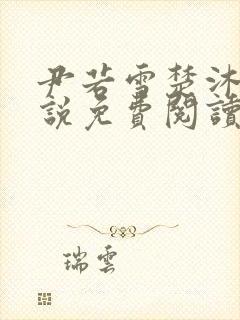 尹若雪楚沐
說免費閱讀
瑞雲